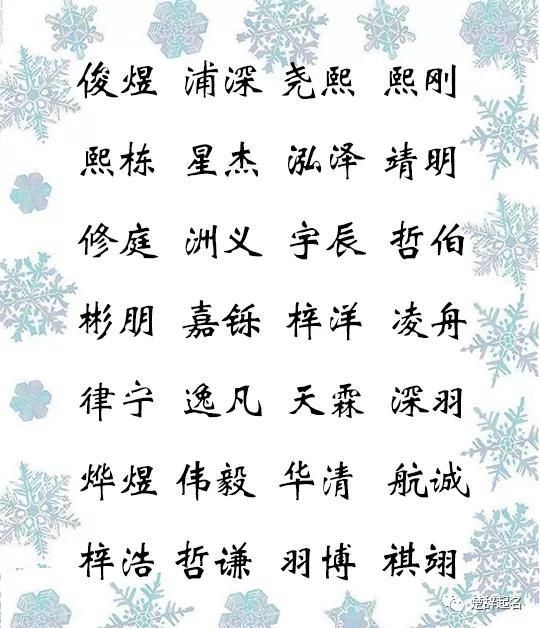 俊煜 浦深 尧熙 熙刚
熙栋 星杰 泓泽 靖明
修庭 洲义 宇辰 哲伯
彬朋 嘉铄 梓洋 凌舟
律宁 逸凡 天霖 深羽
烨煜 伟毅 华清 航诚
梓浩 哲谦 羽博 祺翊
楚辞起名